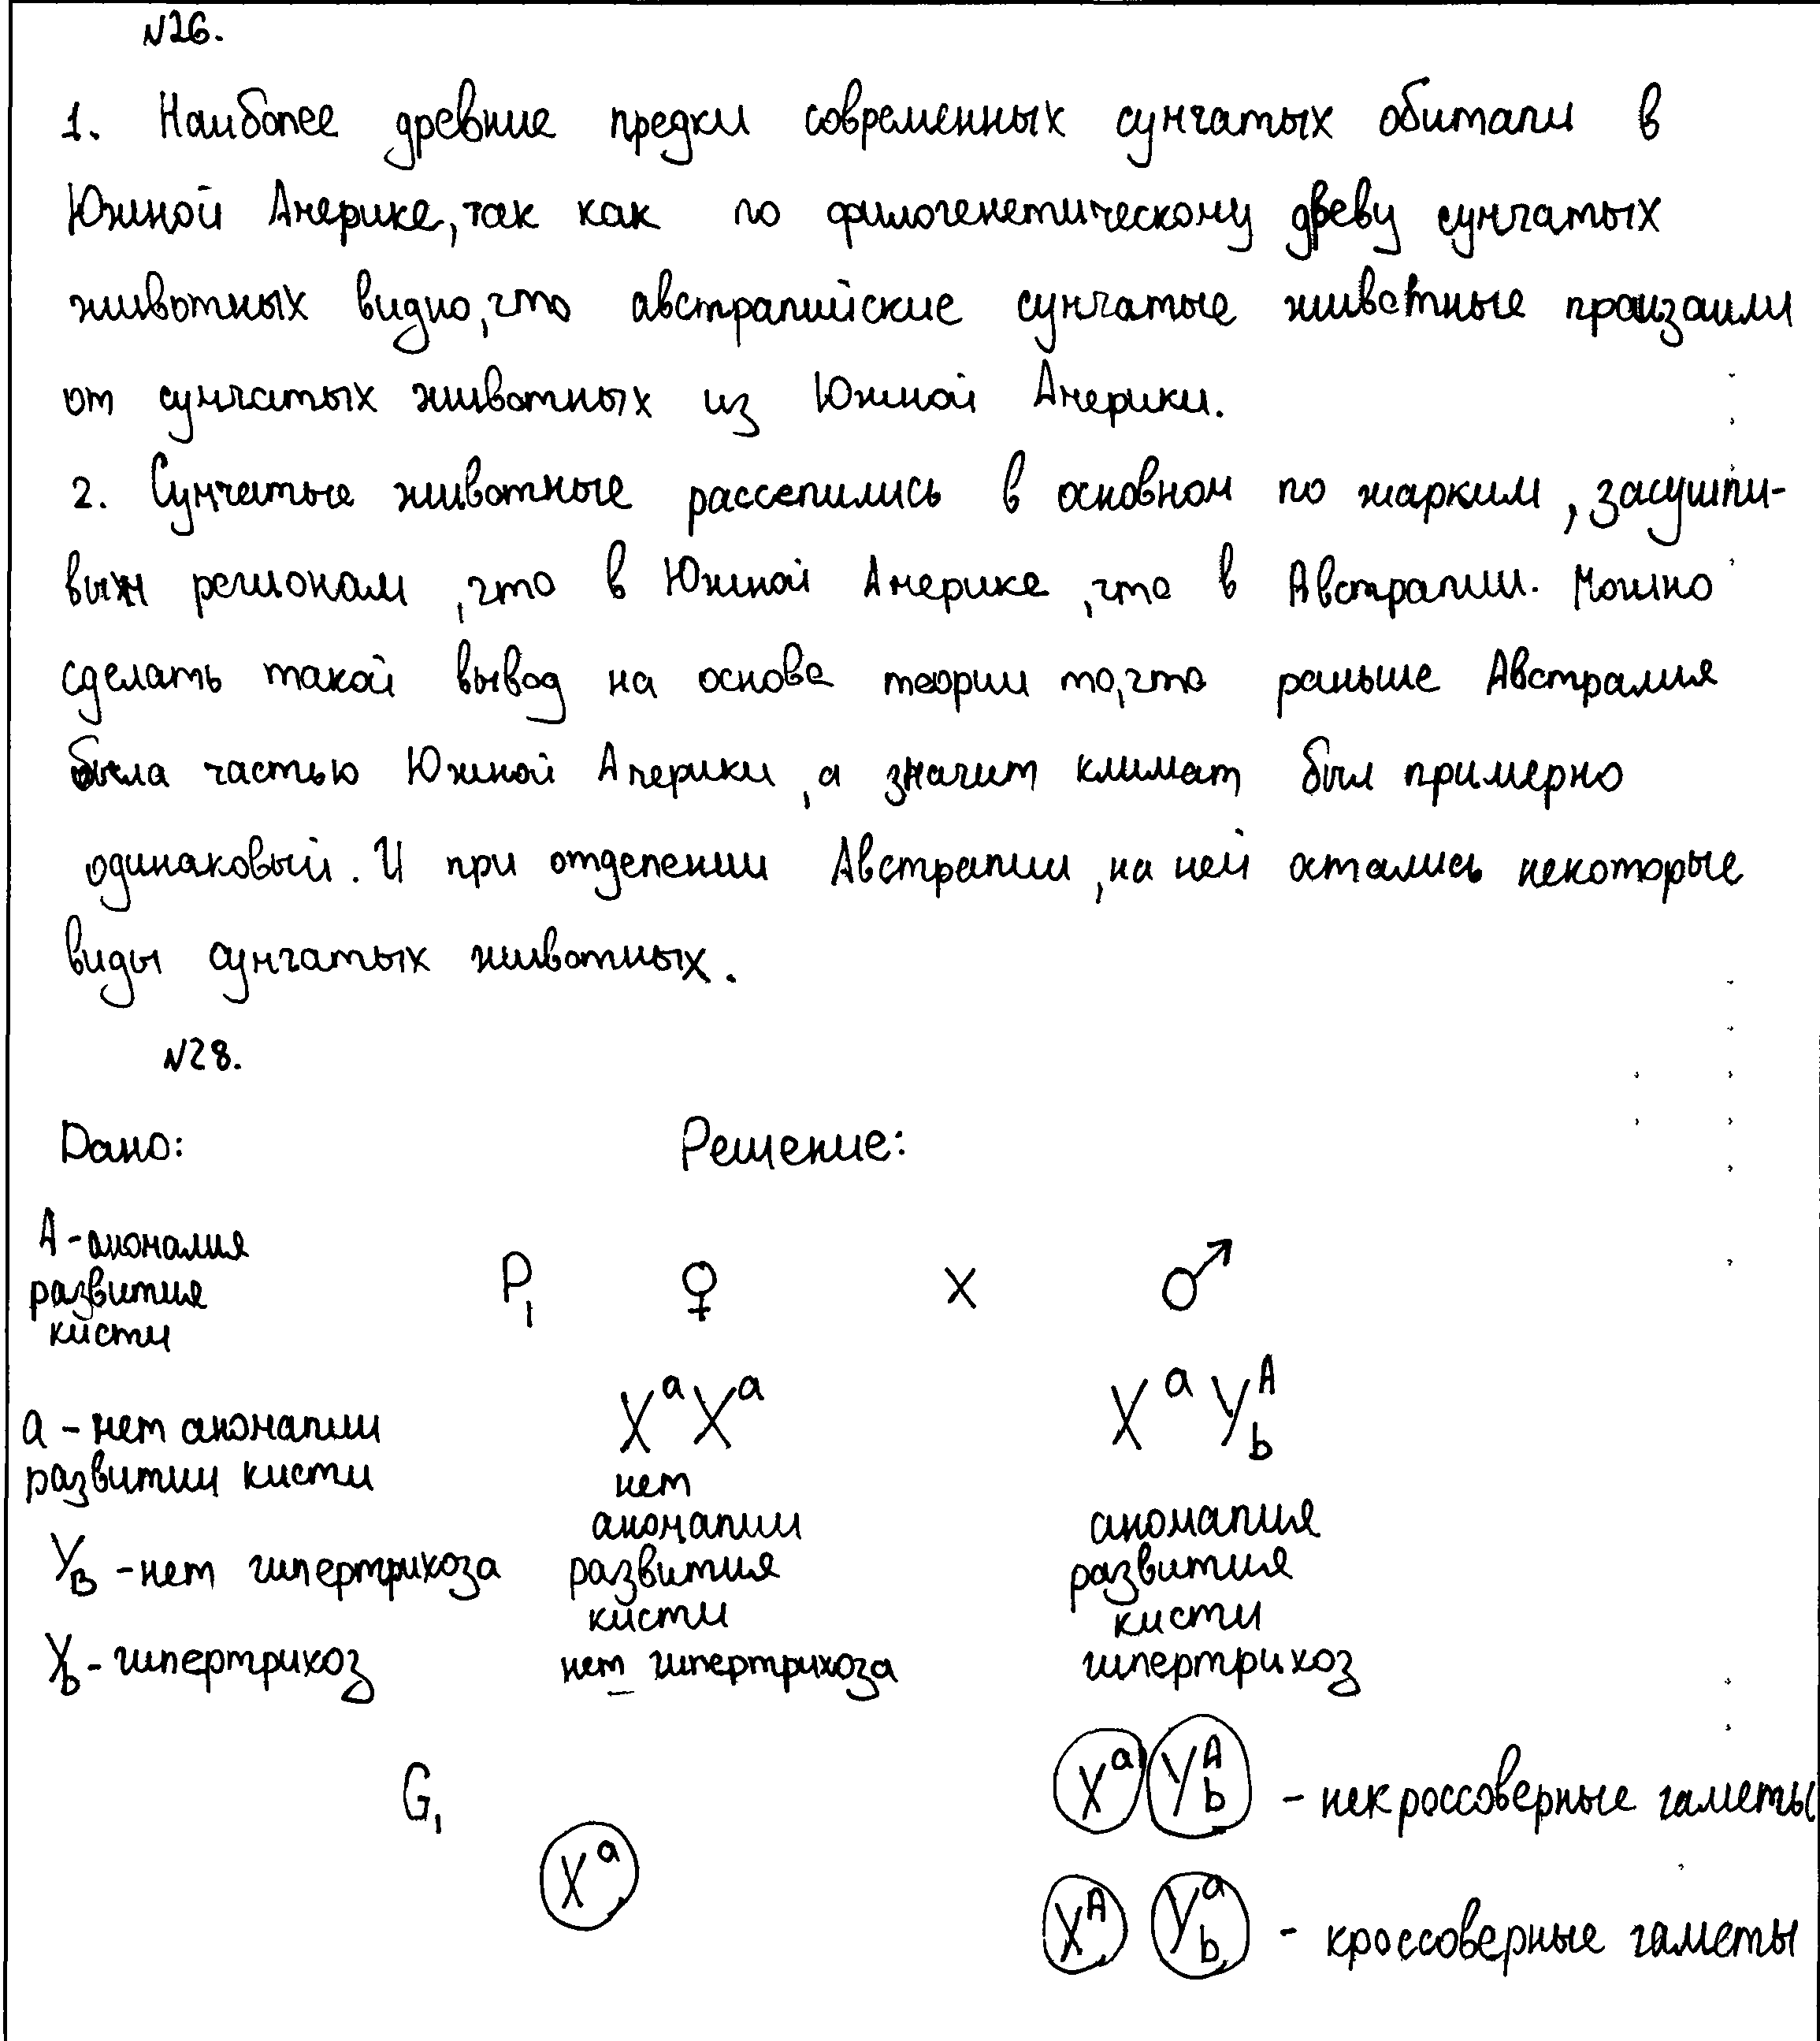 №26.
1. Наиболее древние предки современных сумчатых обитали в
Южной Америке, так как по филогенетическому древу сумчатых
животных видно, что австралийские сумчатые животные произашли
от сумчатых животных из Южной Америки.
2. Сумчатые животные расселились в основном по жарким, засушли-
вым регионам, что в Южной Америке, что в Австралии. Можно
сделать такой вывод на основе теории то, что раньше Австралия
была частью Южной Америки, а значит климат был примерно
одинаковый. И при отделении Австралии, на ней остались некоторые
виды сумчатых животных.
№28.
Дано: Решение:
А - аномалия
развития
кисти
P₁ ♀ x ♂
а - нет аномалии
развитии кисти
XᵃXᵃ XᵃYᴬb
нет
аномалии
развития
кисти
нет гипертрихоза
аномалия
развития
кисти
гипертрихоз
YB - нет гипертрихоза
Yb - гипертрихоз
G₁
Xᵃ
Xᵃ Yᴬb - некроссоверные гаметы
Xᴬ Yᵃb - кроссоверные гаметы